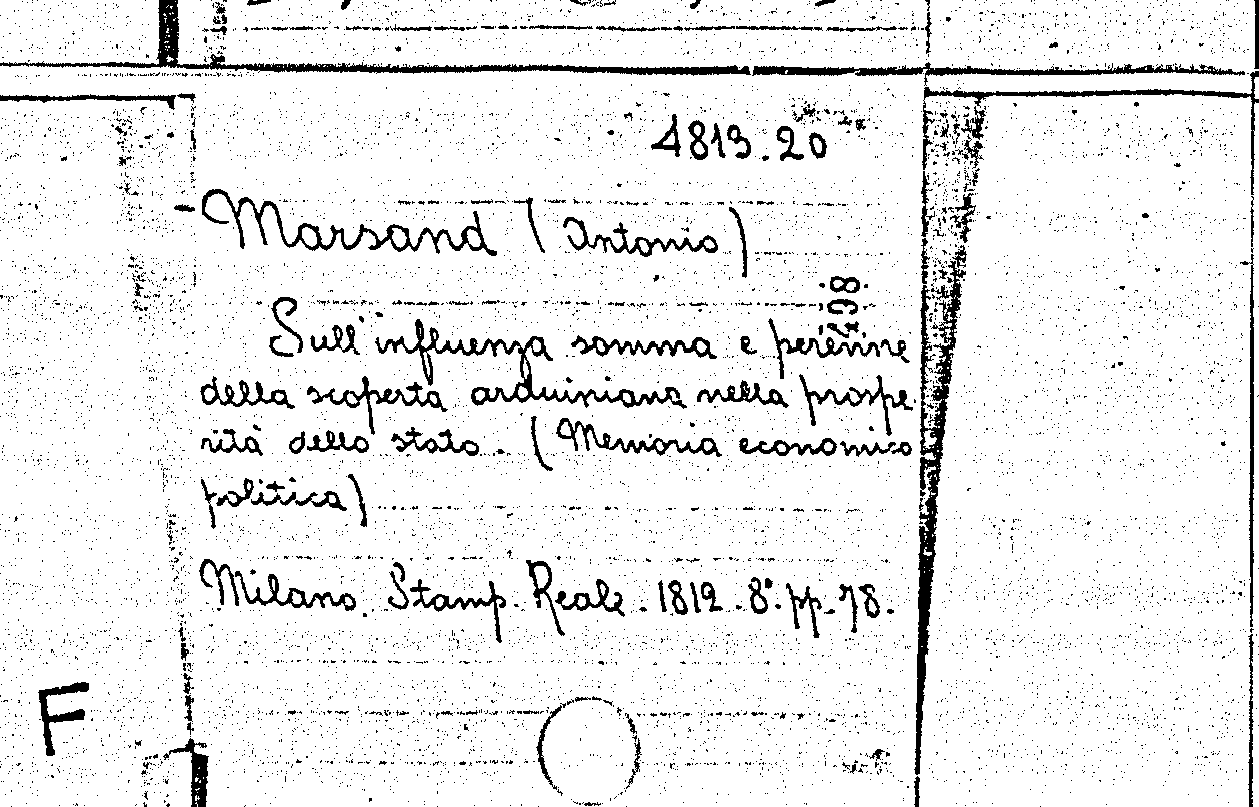 4813.20
Marsand (Antonio)
Sull'influenza somma e perenne
della scoperta arduiniana nella prospe
rità dello stato. (Memoria economico
politica)
Milano. Stamp. Reale. 1812. 8°. pp. 78.
F